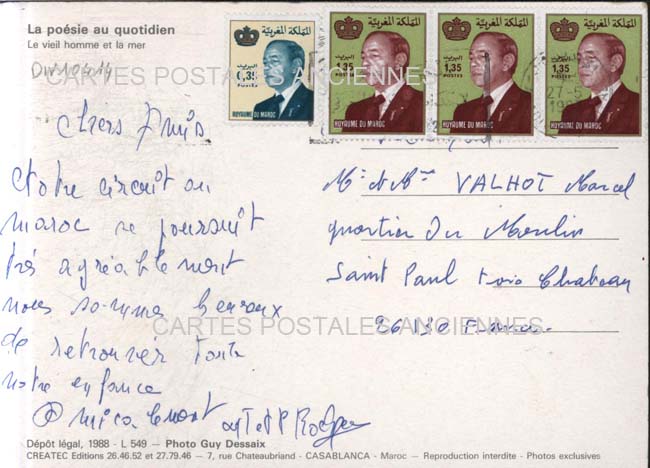 La poésie au quotidien
Le vieil homme et la mer
CARTES POSTALES ANCIENNES
المملكة المغربية
المملكة المغربية
المملكة المغربية
المملكة المغربية
البريد
0,35
POSTES
ROYAUME DU MAROC
البريد
1,35
POSTES
ROYAUME DU MAROC
البريد
1,35
POSTES
ROYAUME DU MAROC
البريد
1,35
POSTES
ROYAUME DU MAROC
27-5
chers Amis
Notre circuit au
maroc se poursuit
très agréablement
nous sommes heureux
de retrouver toute
notre enfance
amicalement
Mr et Mme VALHOT Marcel
quartier Du Moulin
Saint Paul trois Chateau
26130 France
CARTES POSTALES ANCIENNES
Dépôt légal, 1988 - L 549 — Photo Guy Dessaix
CREATEC Editions 26.46.52 et 27.79.46 — 7, rue Chateaubriand - CASABLANCA - Maroc — Reproduction interdite - Photos exclusives